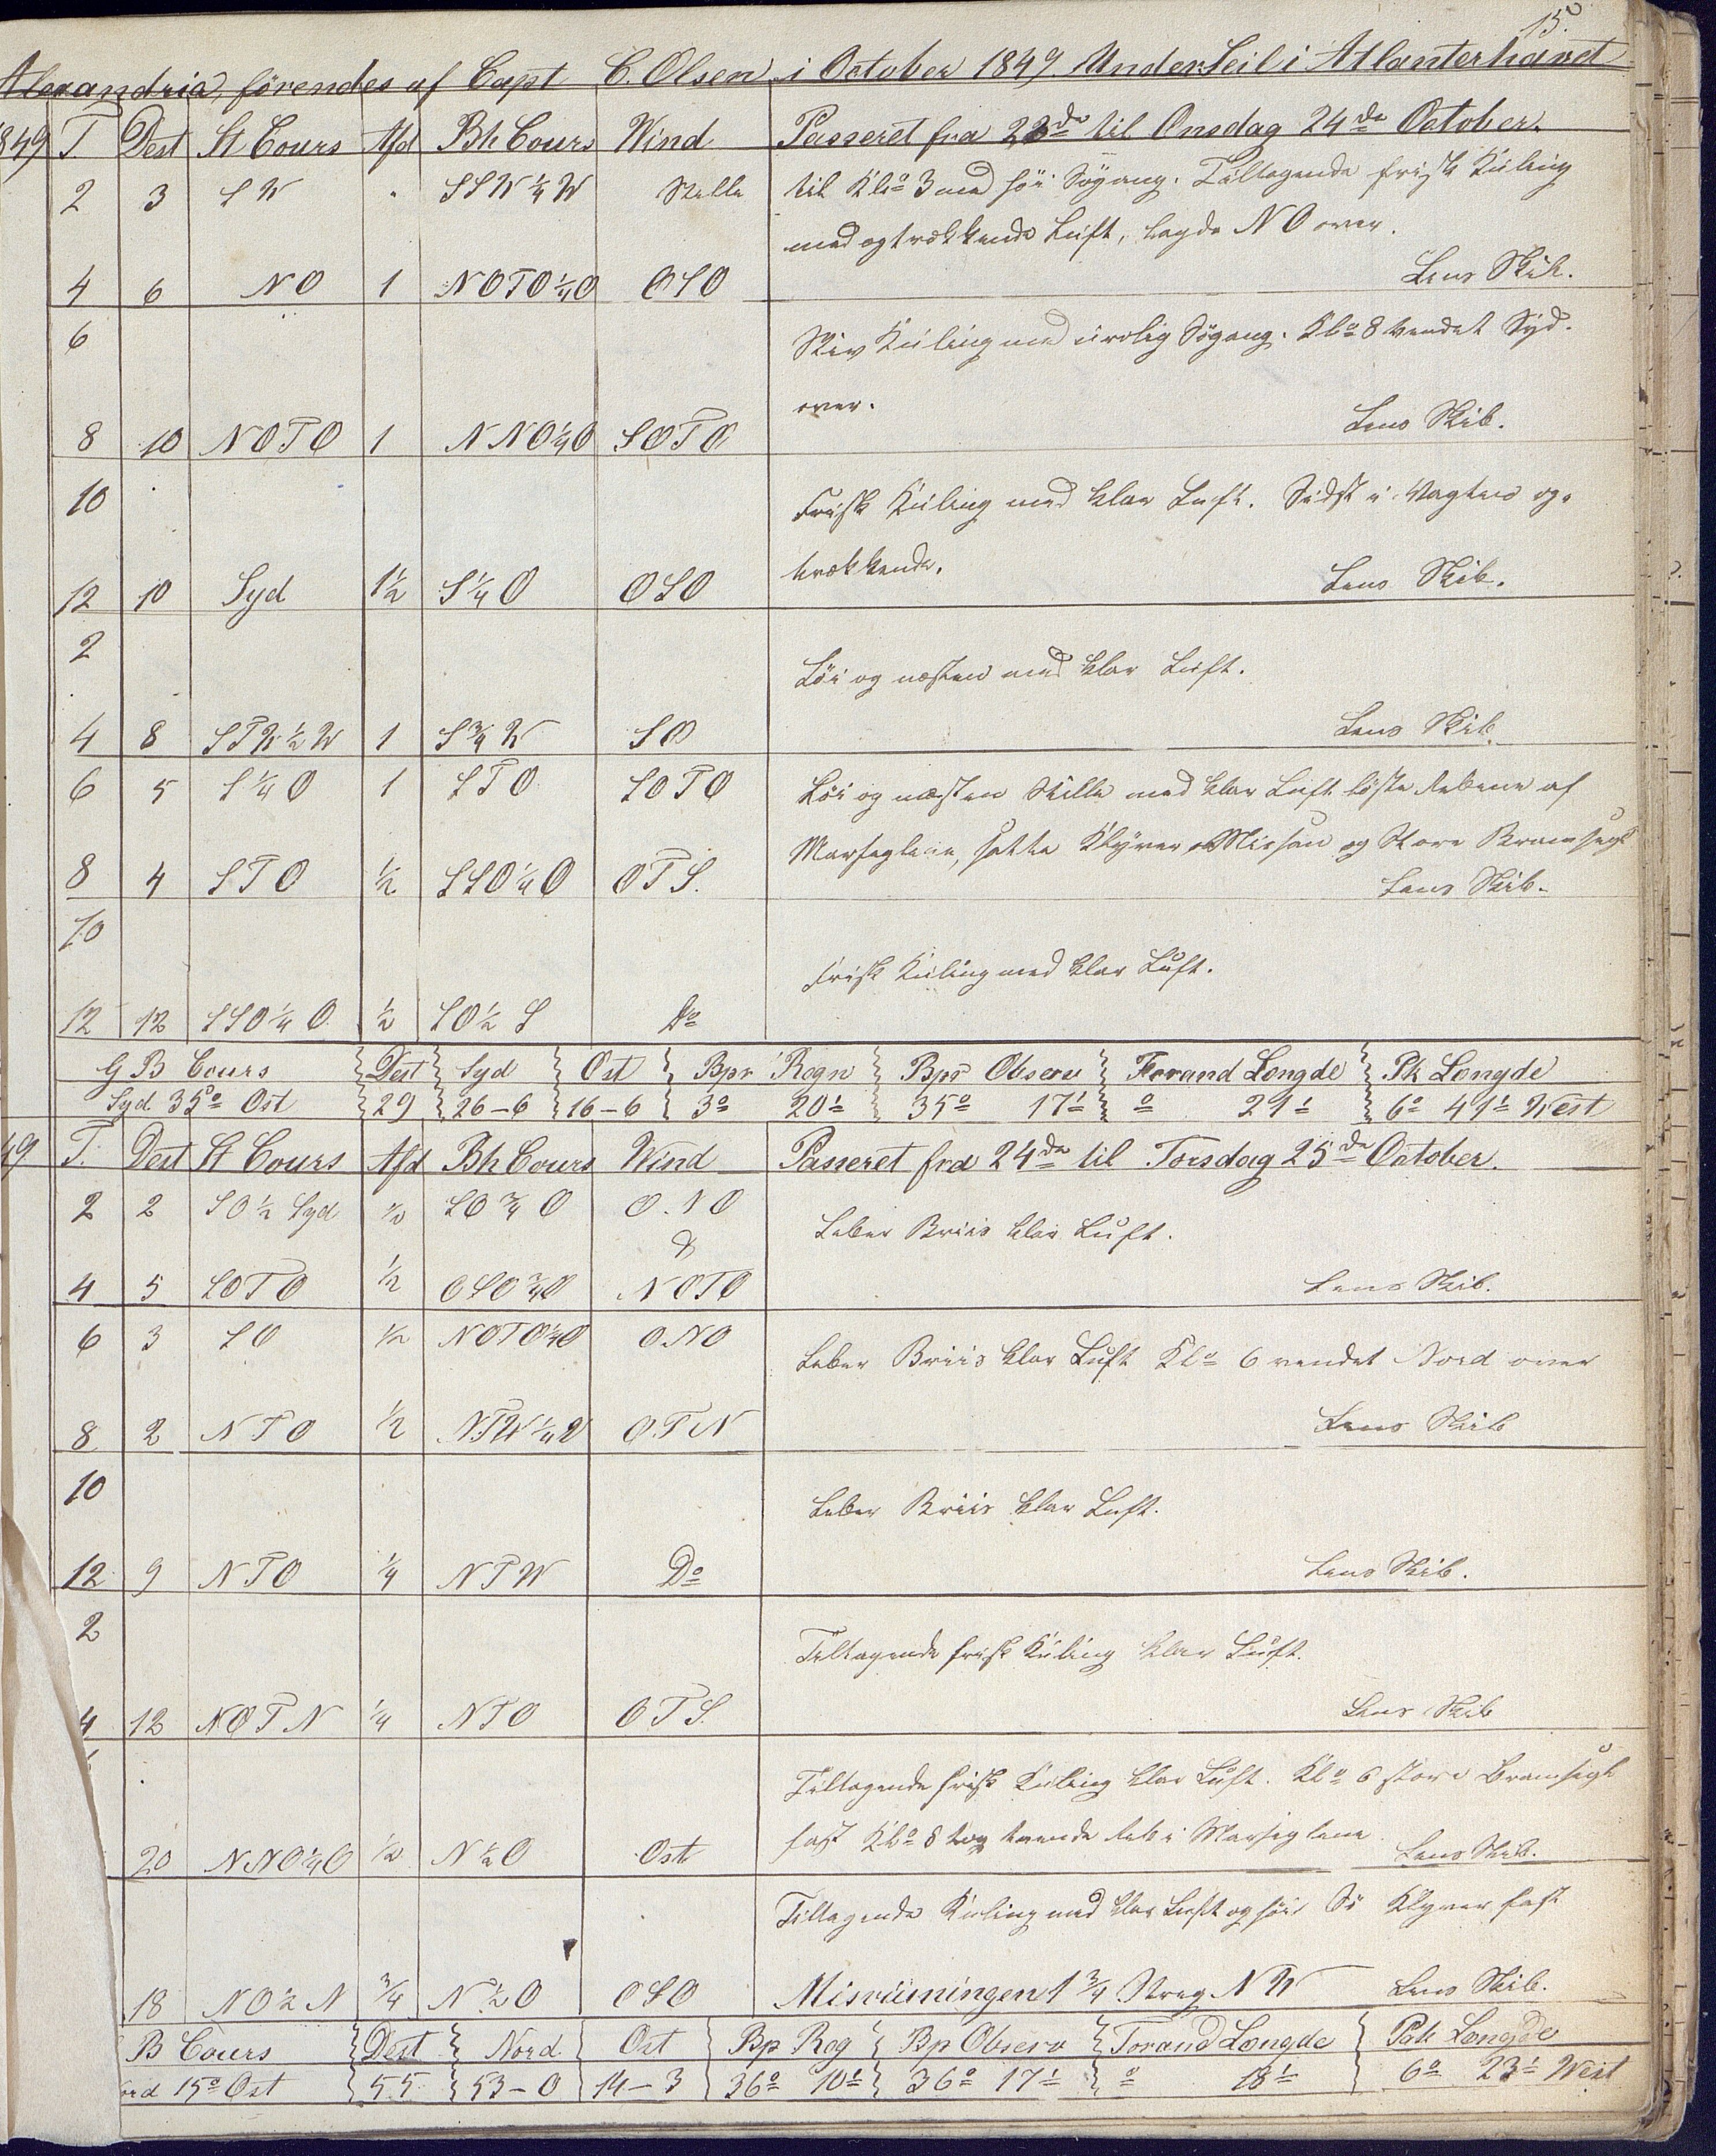 15.
Alexandria, förendes af Capt C. Olsen i October 1849. Under Seil i Atlanterhavet
849 T. Dest St Cours Afd Bh Cours Wind Passeret fra 23de til Onsdag 24de October.
2 3 SW " SSW 1/4 W Stille til Klo 3 med høi Søgang. Tiltagende frisk Kuling
med optrækkende Luft, lagde NO over.
4 6 NO 1 NOTO 1/4 O OSO Lens Skib.
6 Stiv Kuling med urolig Søgang. Klo 8 vendet Syd-
over.
8 10 NOTO 1 NNO 1/4 O SOTO Lens Skib.
10 Frisk Kuling med klar Luft. Sidst i Vagten op-
trækkende.
12 10 Syd 1 1/2 S 1/4 O OSO Lens Skib.
2 Løi og næsten med klar Luft.
4 8 STW 1/2 W 1 S 3/4 W SO Lens Skib.
6 5 S 1/4 O 1 STO SOTO Løi og næsten Stille med klar Luft løste Rebene af
Merseglene, satte Klyver, Mesan og Store Bramsegl
8 4 STO 1/2 SSO 1/4 O OTS. Lens Skib.
10 Frisk Kuling med klar Luft.
12 12 SSO 1/4 O 1/2 SO 1/2 S Do
G B Cours Dest Syd Ost Bpr Regn Bpr Observ Forand Længde Pk Længde
Syd 35° Ost 29 26-6 16-6 3° 20' 35° 17' ° 21' 6° 41' West
49 T. Dest St Cours Afd Bh Cours Wind Passeret fra 24de til Torsdag 25de October.
2 2 SO 1/2 Syd 1/2 SO 3/4 O O.NO Laber Briis klar Luft.
&
4 5 SOTO 1/2 OSO 3/4 O NOTO Lens Skib.
6 3 SO 1/2 NOTO 1/4 O ONO Laber Briis klar Luft Klo 6 vendet Nord over
8 2 NTO 1/2 NTW 1/4 W OTN Lens Skib
10 Laber Briis klar Luft.
12 9 NTO 1/4 NTW Do Lens Skib.
2 Tiltagende frisk Kuling klar Luft.
4 12 NOTN 1/4 NTO OTS. Lens Skib
Tiltagende frisk Kuling klar Luft. Klo 6 store Bramsegl
fast Klo 8 tog tvende Reb i Merseglene
20 NNO 1/4 O 1/2 N 1/2 O Ost Lens Skib.
Tiltagende Kuling med klar Luft og høi Sø Klyver fast
18 NO 1/2 N 3/4 N 1/2 O OSO Misviisningen 1 3/4 Streg NW Lens Skib.
B Cours Dest Nord Ost Bp Reg Bp Observ Forand Længde Pak Længde
ord 15° Ost 55 53-0 14-3 36° 10' 36° 17' ° 18' 6° 23' West